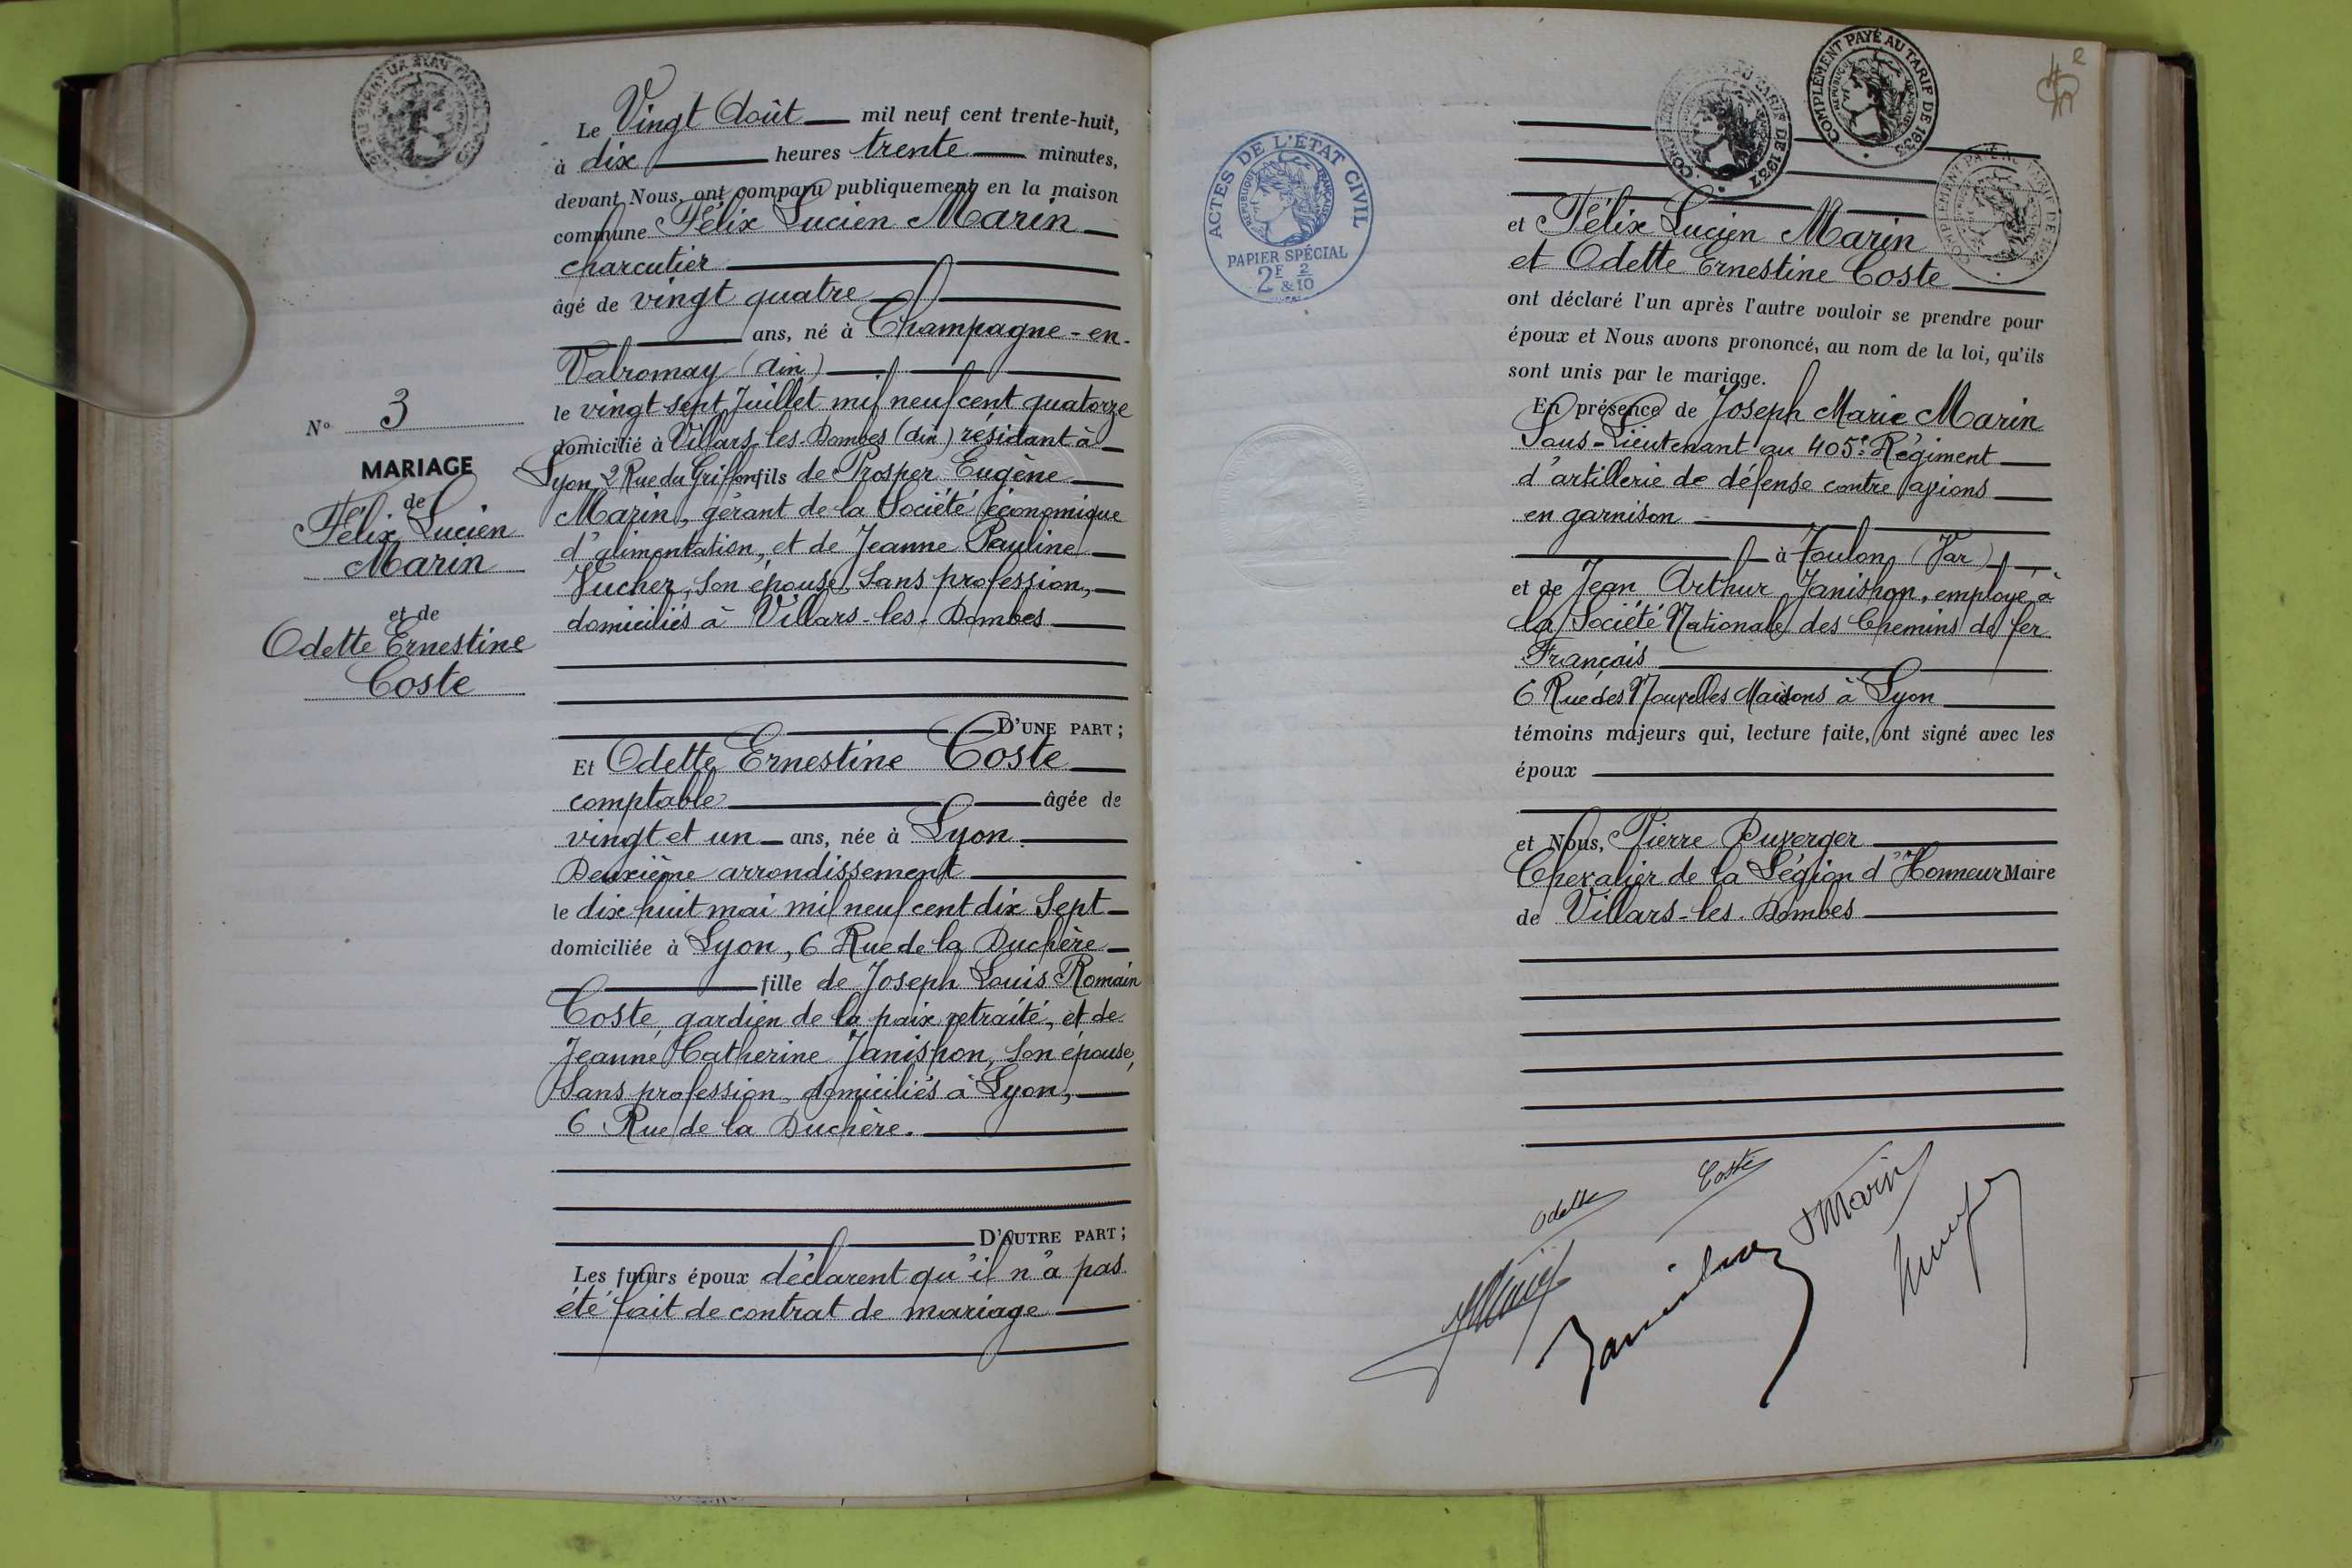 Le Vingt Août mil neuf cent trente-huit,
à dix heures trente minutes,
devant Nous, ont comparu publiquement en la maison
commune Félix Lucien Marin
charcutier
âgé de vingt quatre
ans, né à Champagne-en-
Valromay (Ain)
le vingt sept Juillet mil neuf cent quatorze
domicilié à Villars-les-Dombes (Ain) résidant à
Lyon, 2 Rue du Griffon fils de Prosper Eugène
Marin, gérant de la Société économique
d'alimentation, et de Jeanne Pauline
Vucher, son épouse, sans profession,
domiciliés à Villars-les-Dombes
D'UNE PART;
N° 3
MARIAGE
de
Félix Lucien
Marin
et de
Odette Ernestine
Coste
Et Odette Ernestine Coste
comptable âgée de
vingt et un ans, née à Lyon
Deuxième arrondissement
le dix huit mai mil neuf cent dix sept
domiciliée à Lyon, 6 Rue de la Duchère
fille de Joseph Louis Romain
Coste, gardien de la paix retraité, et de
Jeanne Catherine Janishon, son épouse,
sans profession, domiciliés à Lyon,
6 Rue de la Duchère.
D'AUTRE PART;
Les futurs époux déclarent qu'il n'a pas
été fait de contrat de mariage
ACTES DE L'ÉTAT CIVIL
RÉPUBLIQUE FRANÇAISE
PAPIER SPÉCIAL
2F & 2/10
COMPLÉMENT PAYÉ AU TARIF DE 1937
COMPLÉMENT PAYÉ AU TARIF DE 1935
et Félix Lucien Marin
et Odette Ernestine Coste
ont déclaré l'un après l'autre vouloir se prendre pour
époux et Nous avons prononcé, au nom de la loi, qu'ils
sont unis par le mariage.
En présence de Joseph Marie Marin
Sous-Lieutenant au 405e Régiment
d'artillerie de défense contre avions
en garnison
à Toulon (Var)
et de Jean Arthur Janishon, employé à
la Société Nationale des Chemins de fer
Français
6 Rue des Nouvelles Maisons à Lyon
témoins majeurs qui, lecture faite, ont signé avec les
époux
et Nous, Pierre Duverger
Chevalier de la Légion d'Honneur Maire
de Villars-les-Dombes
Odette Coste
Marin
Janishon